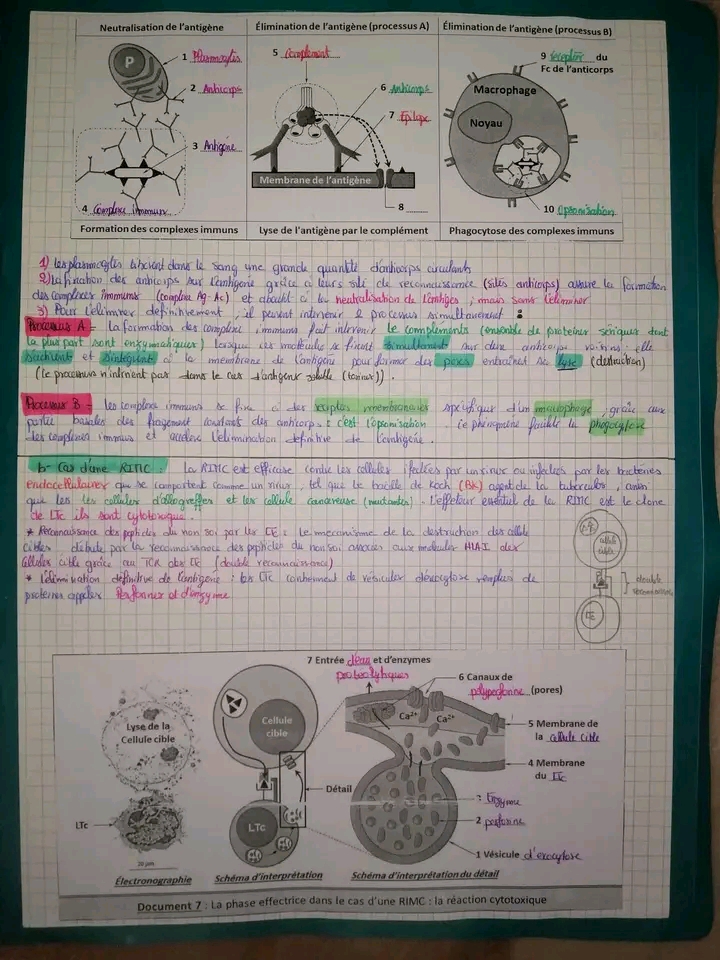 Neutralisation de l'antigène
Élimination de l'antigène (processus A)
Élimination de l'antigène (processus B)
P
1 Plasmocytes
2 Anticorps
3 Antigène
4 Complexe immun
5 Complement
6 Anticorps
7 Epitope
Membrane de l'antigène
8
9 récepteur du
Fc de l'anticorps
Macrophage
Noyau
10 Opsonisation
Formation des complexes immuns
Lyse de l'antigène par le complément
Phagocytose des complexes immuns
1) les plasmocytes libèrent dans le sang une grande quantité d'anticorps circulants
2) La fixation des anticorps sur l'antigène grâce à leurs site de reconnaissance (sites anticorps) assure la formation
des complexes immuns (complexe Ag-Ac) et aboutit à la neutralisation de l'antigès, mais sans l'éliminer.
3) Pour l'éliminer definitivement, il peuvent intervenir 2 processus simultanement :
Processus A - la formation des complexe immuns fait intervenir le compléments (ensemble de proteines sériques dont
la plus part sont enzymatiques) lorsque ces molécule se fixent simultanement sur deux anticorps voisins : elle
s'activent et s'intègrent à la membrane de l'antigène pour former des pores entraînant sa lyse (destruction)
(le processus n'intervient pas dans le cas d'antigène soluble (toxine)).
Processus B - les complexe immuns se fixe à des récéptés membranaires spécifique d'un macrophage, grâce aux
partie basales des fragement constants des anticorps : c'est l'opsonisation. Ce phénomène facilite la phagocytose
des complexes immuns et accélère l'élimination definitive de l'antigène.
b- Cas d'une RIMC : la RIMC est efficace contre les cellules infectées par un virus ou infectées par les bactéries
endocellulaires qui se comportent comme un virus, tel que le bacille de Koch (BK) agent de la tuberculose, ainsi
que les les cellules d'allogreffes et les cellule cancereuse (mutantes). L'effecteur essentiel de la RIMC est le clone
de LTc ils sont cytotoxique.
* Reconnaissance des peptides du non soi par les LTc : le mecanisme de la destruction des cellule
cibles débute par la reconnaissance des peptides du non soi associés aux molécules HLA I des
Cellules cible grâce au TCR des LTc (double reconnaissance)
* L'élimination définitive de l'antigène : les LTc contiennent de vésicules d'exocytose remplies de
proteines appelées Perforines et d'enzyme
cellule
cible
LTc
double
reconnaissance
7 Entrée d'eau et d'enzymes
proteolytiques
6 Canaux de
polyperforine (pores)
Ca²⁺
Ca²⁺
5 Membrane de
la cellule cible
4 Membrane
du LTc
3 Enzyme
2 perforine
1 Vésicule d'exocytose
Lyse de la
Cellule cible
LTc
20 µm
Cellule
cible
LTc
Détail
Électronographie
Schéma d'interprétation
Schéma d'interprétation du détail
Document 7 : La phase effectrice dans le cas d'une RIMC : la réaction cytotoxique